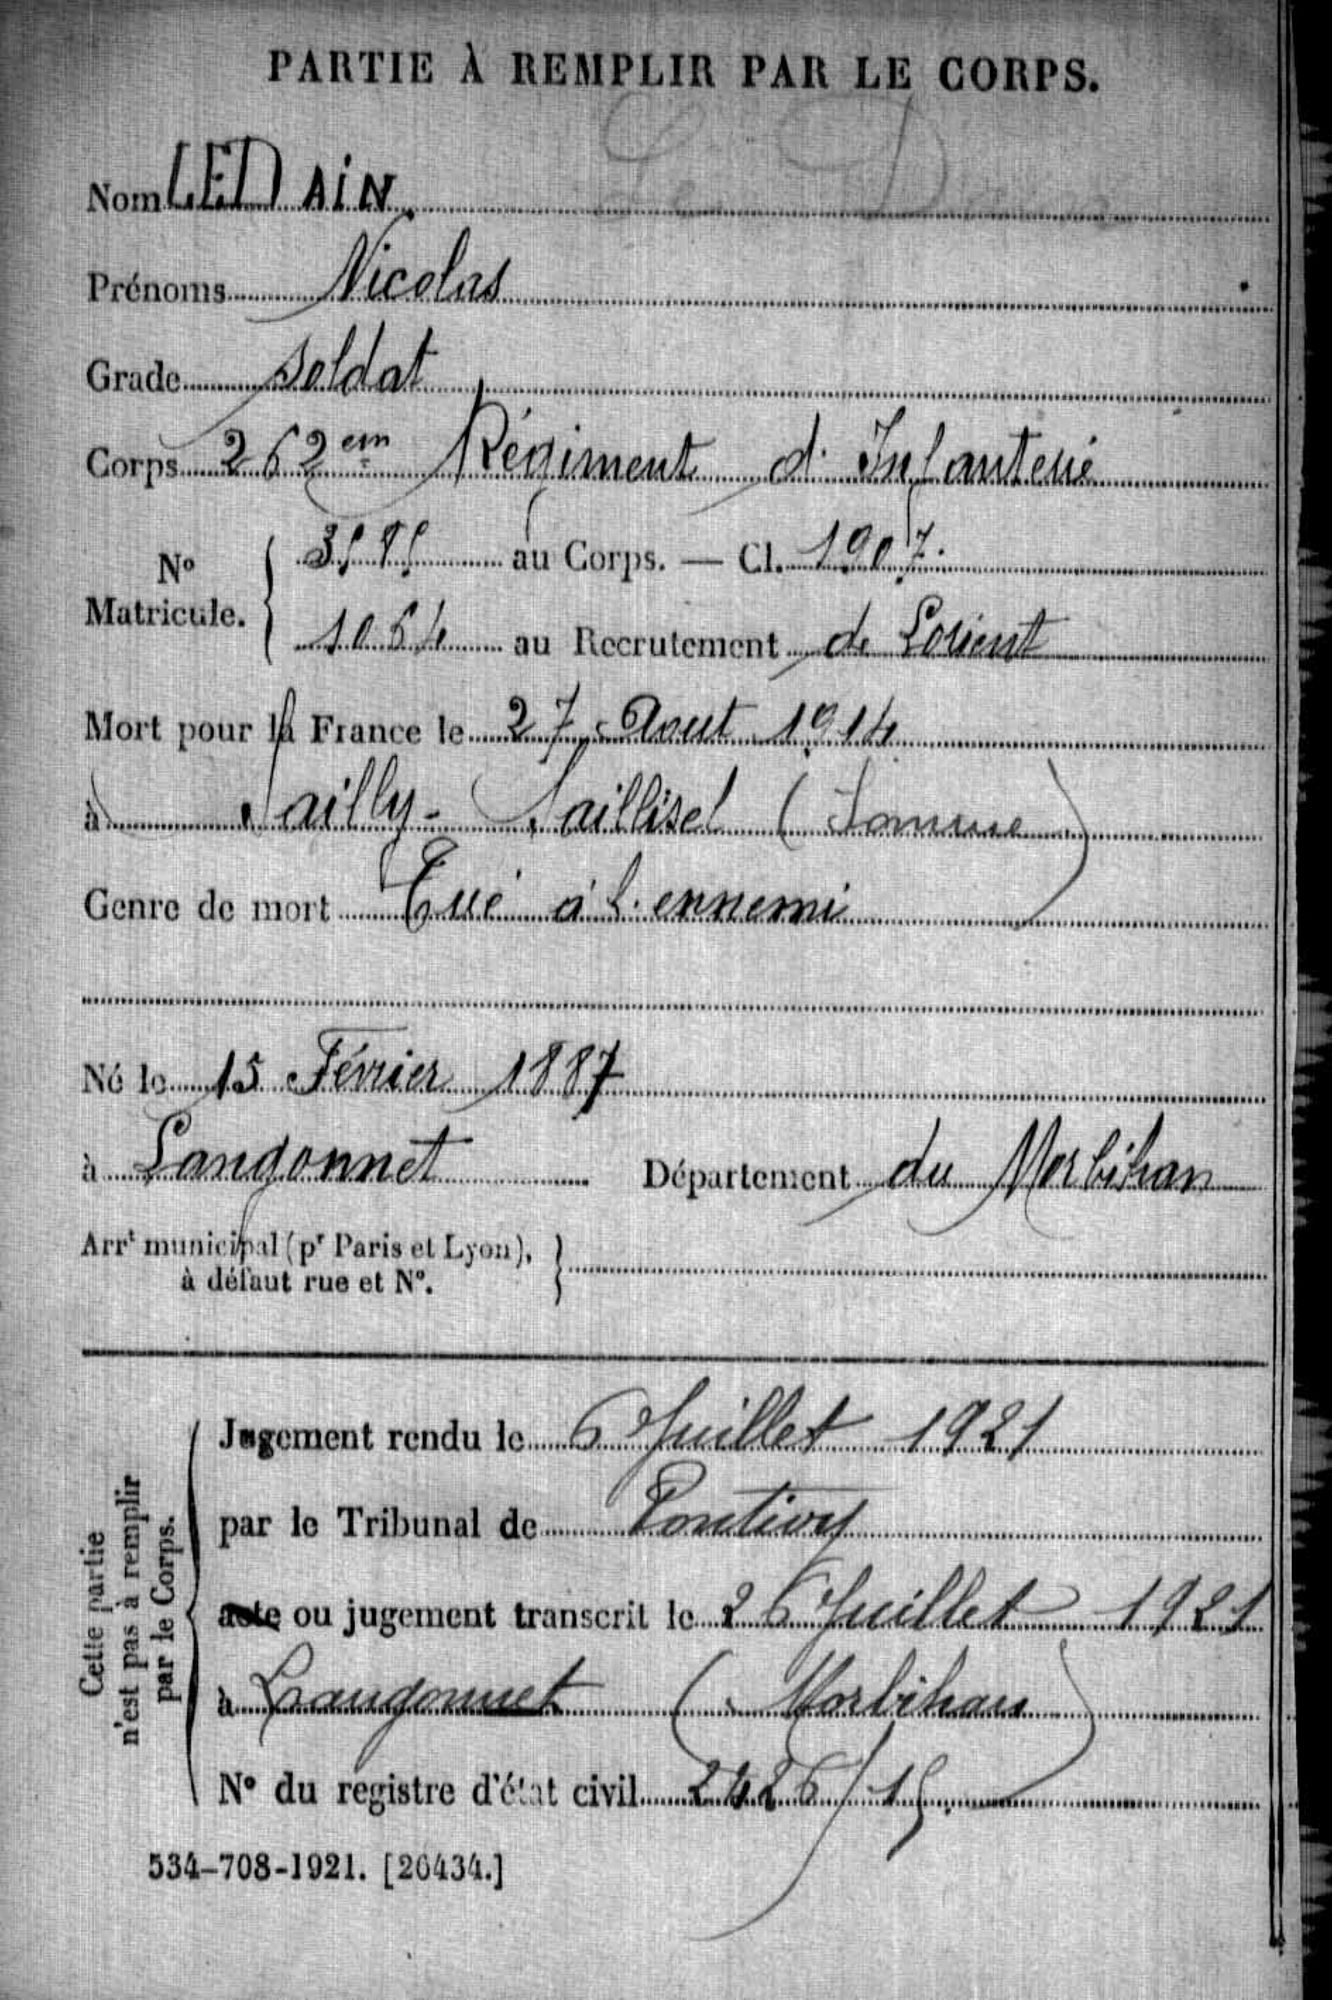 PARTIE À REMPLIR PAR LE CORPS.
Nom LE DAIN
Prénoms Nicolas
Grade soldat
Corps 262em Régiment d'Infanterie
No Matricule. au Corps. — Cl. 1907.
1064 au Recrutement de Lorient
Mort pour la France le 27 Aout 1914
à Sailly-Saillisel (Somme)
Genre de mort Tué à l'ennemi
Né le 15 Février 1887
à Langonnet Département du Morbihan
Arrt municipal (pr Paris et Lyon),
à défaut rue et No.
Cette partie
n'est pas à remplir
par le Corps.
Jugement rendu le 6 Juillet 1921
par le Tribunal de Pontivy
acte ou jugement transcrit le 26 Juillet 1921
à Langonnet (Morbihan)
No du registre d'état civil
534-708-1921. [26434.]